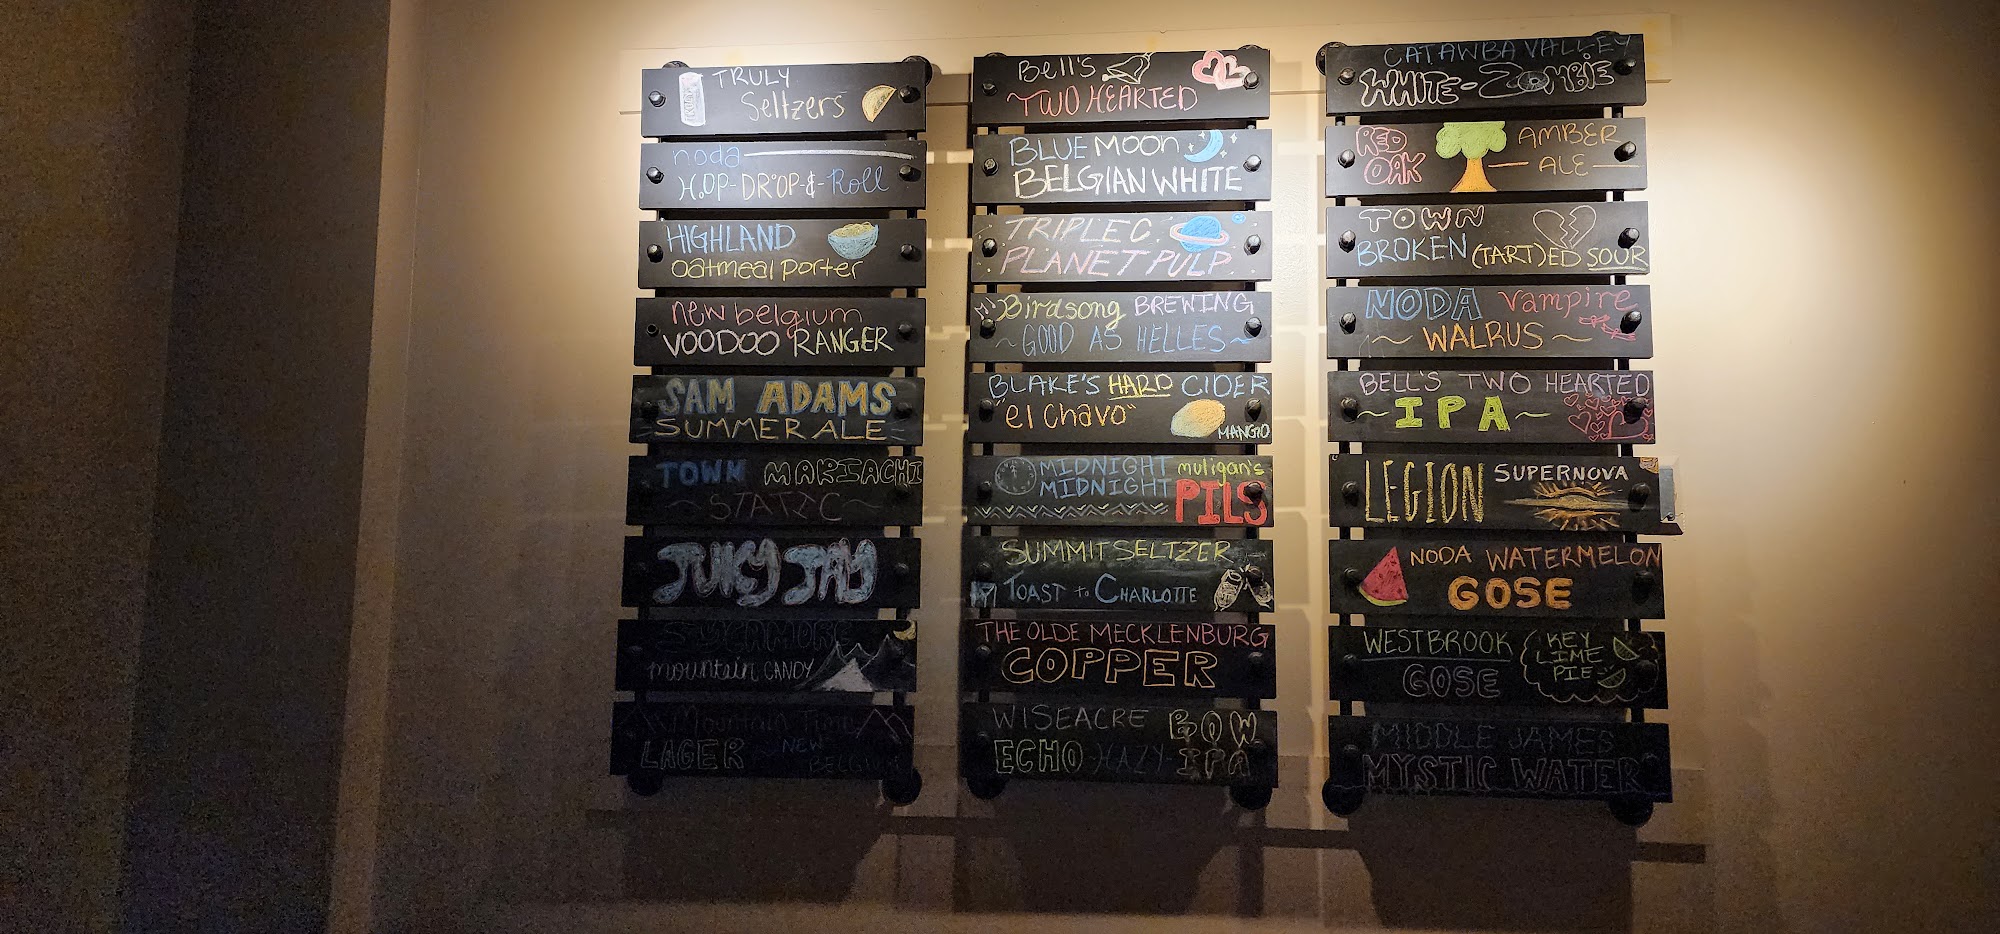 TRULY
Seltzers
noda
HOP-DROP-&-Roll
HIGHLAND
oatmeal porter
new belgium
VOODOO RANGER
SAM ADAMS
SUMMER ALE
TOWN MARIACHI
~STATIC~
JUICY JAY
SYCAMORE
mountain CANDY
Mountain Time
LAGER ~NEW
BELGIUM
Bell's
TWO HEARTED
BLUE MOON
BELGIAN WHITE
TRIPLE C.
PLANET PULP
Birdsong BREWING
~GOOD AS HELLES~
BLAKE'S HARD CIDER
"el Chavo"
MANGO
MIDNIGHT muligan's
MIDNIGHT PILS
SUMMIT SELTZER
TOAST to CHARLOTTE
THE OLDE MECKLENBURG
COPPER
WISEACRE BOW
ECHO-HAZY-IPA
CATAWBA VALLEY
WHITE-ZOMBIE
RED AMBER
OAK — ALE —
TOWN
BROKEN (TART)ED SOUR
NODA Vampire
~ WALRUS ~
BELL'S TWO HEARTED
~IPA~
LEGION SUPERNOVA
NODA WATERMELON
GOSE
WESTBROOK KEY
LIME
GOSE PIE
MIDDLE JAMES
MYSTIC WATER